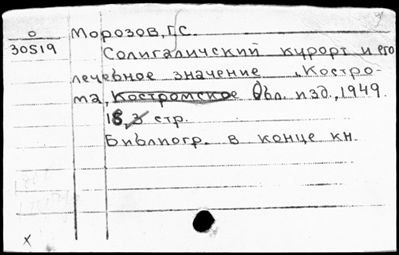 о
30519
Морозов, Г.С.
Солигаличский курорт и его
лечебное значение. Костро-
ма, Костромское Обл. изд., 1949.
18, 3 стр.
Библиогр. в конце кн.
х